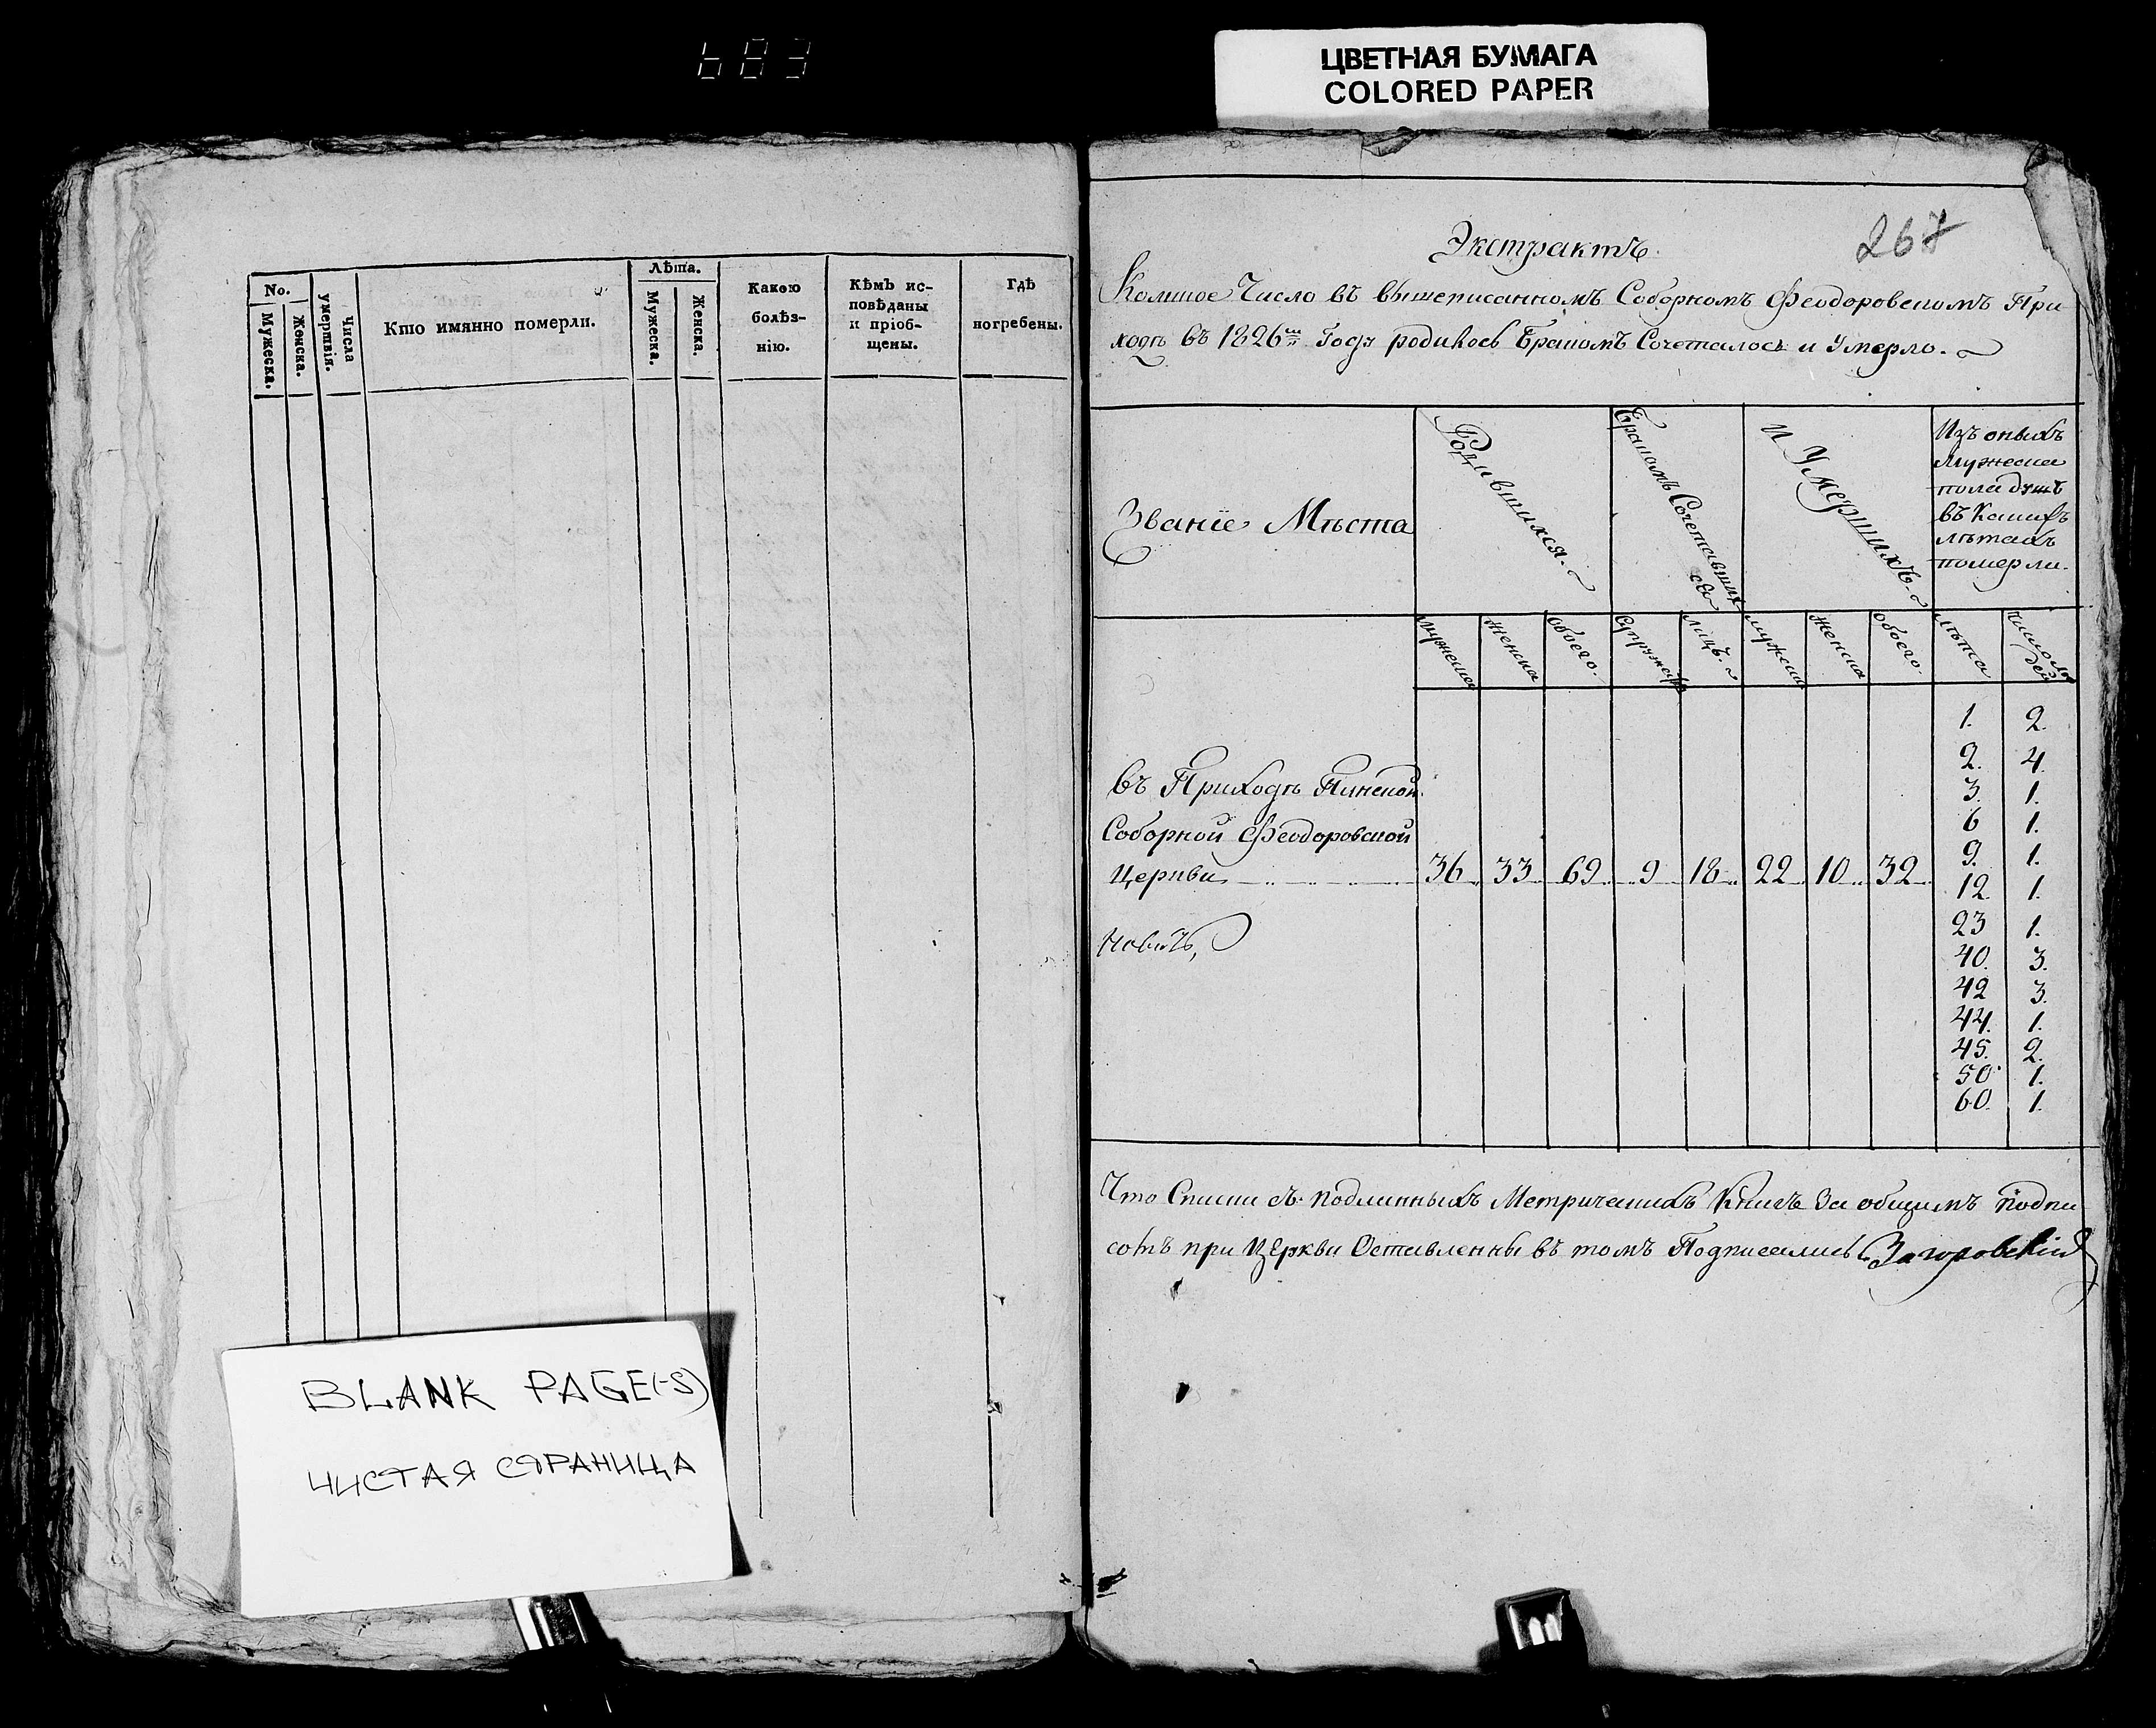 683
ЦВЕТНАЯ БУМАГА
COLORED PAPER
No.
Мужеска.
Женска.
Числа умертвія.
Кто имянно померли.
Лѣта.
Мужеска.
Женска.
Какою
болѣз-
нію.
Кѣмъ ис-
повѣданы
и пріоб-
щены.
Гдѣ
погребены.
BLANK PAGE(-S)
ЧИСТАЯ СТРАНИЦА
267
Экстрактъ.
Коликое Число въ вышеписанномъ Соборномъ Феодоровскомъ При
ходѣ въ 1826мъ Году родилось Бракомъ Сочеталось и Умерло.
Званіе Мѣста
Родившихся.
Бракомъ Сочетавших
ся
и Умершихъ.
Изъ оныхъ
мужеска
пола душъ
въ Какихъ
лѣтахъ
померли.
мужеска
женска
обоего.
Супружествъ
лицъ.
мужеска
женска
обоего.
лѣта
число людей
въ Приходѣ Пинской
Соборной Феодоровской
Церкви 36 33 69 9 18 22 10 32
1. 2.
2. 4.
3. 1.
6 1.
9. 1.
12. 1.
23 1.
40. 3.
42 3.
44. 1.
45. 2.
50 1.
60. 1.
Что Списки съ подлинныхъ Метрическихъ Книгъ За общимъ подпи
сомъ при Церкви Оставленны въ томъ Подписались Загоровскій